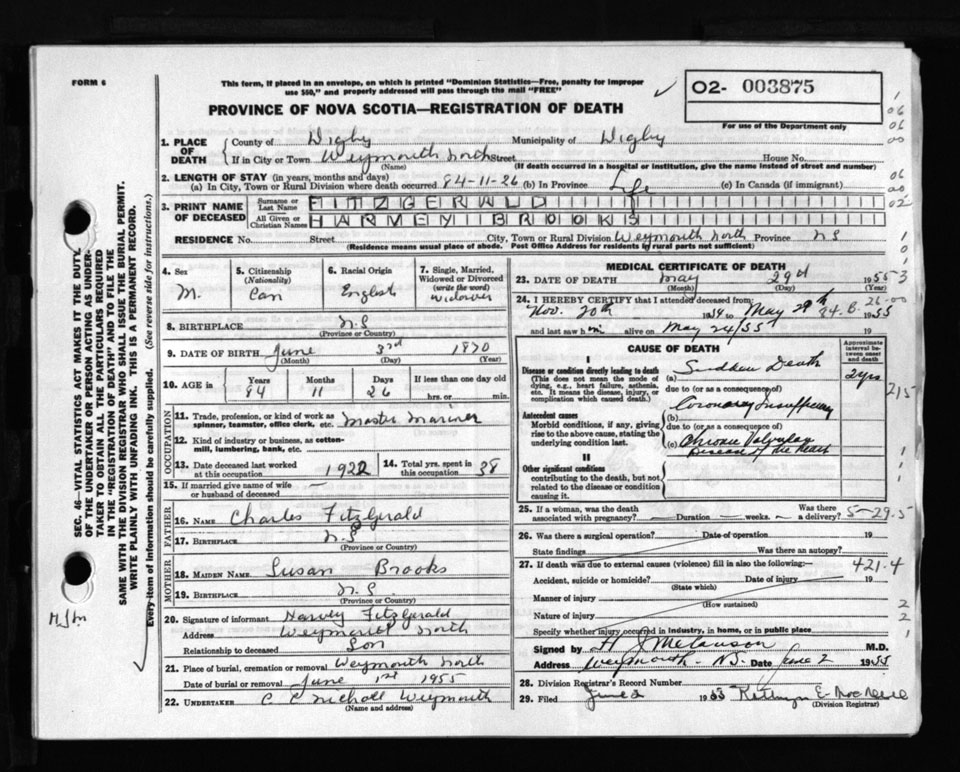 FORM 6
This form, if placed in an envelope, on which is printed "Dominion Statistics—Free, penalty for improper
use $50," and properly addressed will pass through the mail "FREE"
PROVINCE OF NOVA SCOTIA—REGISTRATION OF DEATH
O2- 003875
For use of the Department only
1. PLACE OF DEATH
County of Digby Municipality of Digby
If in City or Town Weymouth North Street House No.
(Name) (If death occurred in a hospital or institution, give the name instead of street and number)
2. LENGTH OF STAY (in years, months and days)
(a) In City, Town or Rural Division where death occurred 84-11-26 (b) In Province Life (c) In Canada (if immigrant)
3. PRINT NAME OF DECEASED
Surname or Last Name FITZGERALD
All Given or Christian Names HARVEY BROOKS
RESIDENCE No. Street City, Town or Rural Division Weymouth North Province NS
(Residence means usual place of abode. Post Office Address for residents in rural parts not sufficient)
4. Sex M.
5. Citizenship (Nationality) Can
6. Racial Origin English
7. Single, Married, Widowed or Divorced (write the word) Widower
8. BIRTHPLACE N.S
(Province or Country)
9. DATE OF BIRTH June 3rd 1870
(Month) (Day) (Year)
10. AGE in Years 84 Months 11 Days 26 If less than one day old hrs. or min.
OCCUPATION
11. Trade, profession, or kind of work as spinner, teamster, office clerk, etc. Master Mariner
12. Kind of industry or business, as cotton-mill, lumbering, bank, etc.
13. Date deceased last worked at this occupation 1922
14. Total yrs. spent in this occupation 38
15. If married give name of wife or husband of deceased —
FATHER
16. NAME Charles Fitzgerald
17. BIRTHPLACE N.S
(Province or Country)
MOTHER
18. MAIDEN NAME Susan Brooks
19. BIRTHPLACE N.S.
(Province or Country)
20. Signature of informant Harvey Fitzgerald
Address Weymouth North
Relationship to deceased Son
21. Place of burial, cremation or removal Weymouth North
Date of burial or removal June 1st 1955
22. UNDERTAKER C C Nicholl Weymouth
(Name and address)
MEDICAL CERTIFICATE OF DEATH
23. DATE OF DEATH May 29th 1955
(Month) (Day) (Year)
24. I HEREBY CERTIFY that I attended deceased from:
Nov. 20th 1954 to May 29th 1955
and last saw him alive on May 24/55 19
CAUSE OF DEATH
Approximate interval between onset and death
I
Disease or condition directly leading to death
(This does not mean the mode of dying, e.g., heart failure, asthenia, etc. It means the disease, injury, or complication which caused death.)
(a) Sudden Death 2 yrs
due to (or as a consequence of)
Antecedent causes
Morbid conditions, if any, giving rise to the above cause, stating the underlying condition last.
(b) Coronary Insufficiency
due to (or as a consequence of)
(c) Chronic Valvular Disease of the heart
II
Other significant conditions
contributing to the death, but not related to the disease or condition causing it.
25. If a woman, was the death associated with pregnancy? Duration weeks. Was there a delivery?
5-29.5
26. Was there a surgical operation? Date of operation 19
State findings Was there an autopsy?
27. If death was due to external causes (violence) fill in also the following:
421.4
Accident, suicide or homicide? Date of injury 19
(State which)
Manner of injury
(How sustained)
Nature of injury
Specify whether injury occurred in industry, in home, or in public place
Signed by H J Melanson M.D.
Address Weymouth - N.S. Date June 2 1955
28. Division Registrar's Record Number
29. Filed June 2 1955 Kathryn E.
(Division Registrar)
SEC. 46—VITAL STATISTICS ACT MAKES IT THE DUTY
OF THE UNDERTAKER OR PERSON ACTING AS UNDER-
TAKER TO OBTAIN ALL THE PARTICULARS REQUIRED
IN THE "REGISTRATION OF DEATH" AND TO FILE THE
SAME WITH THE DIVISION REGISTRAR WHO SHALL ISSUE THE BURIAL PERMIT.
WRITE PLAINLY WITH UNFADING INK. THIS IS A PERMANENT RECORD.
Every item of information should be carefully supplied. (See reverse side for instructions.)